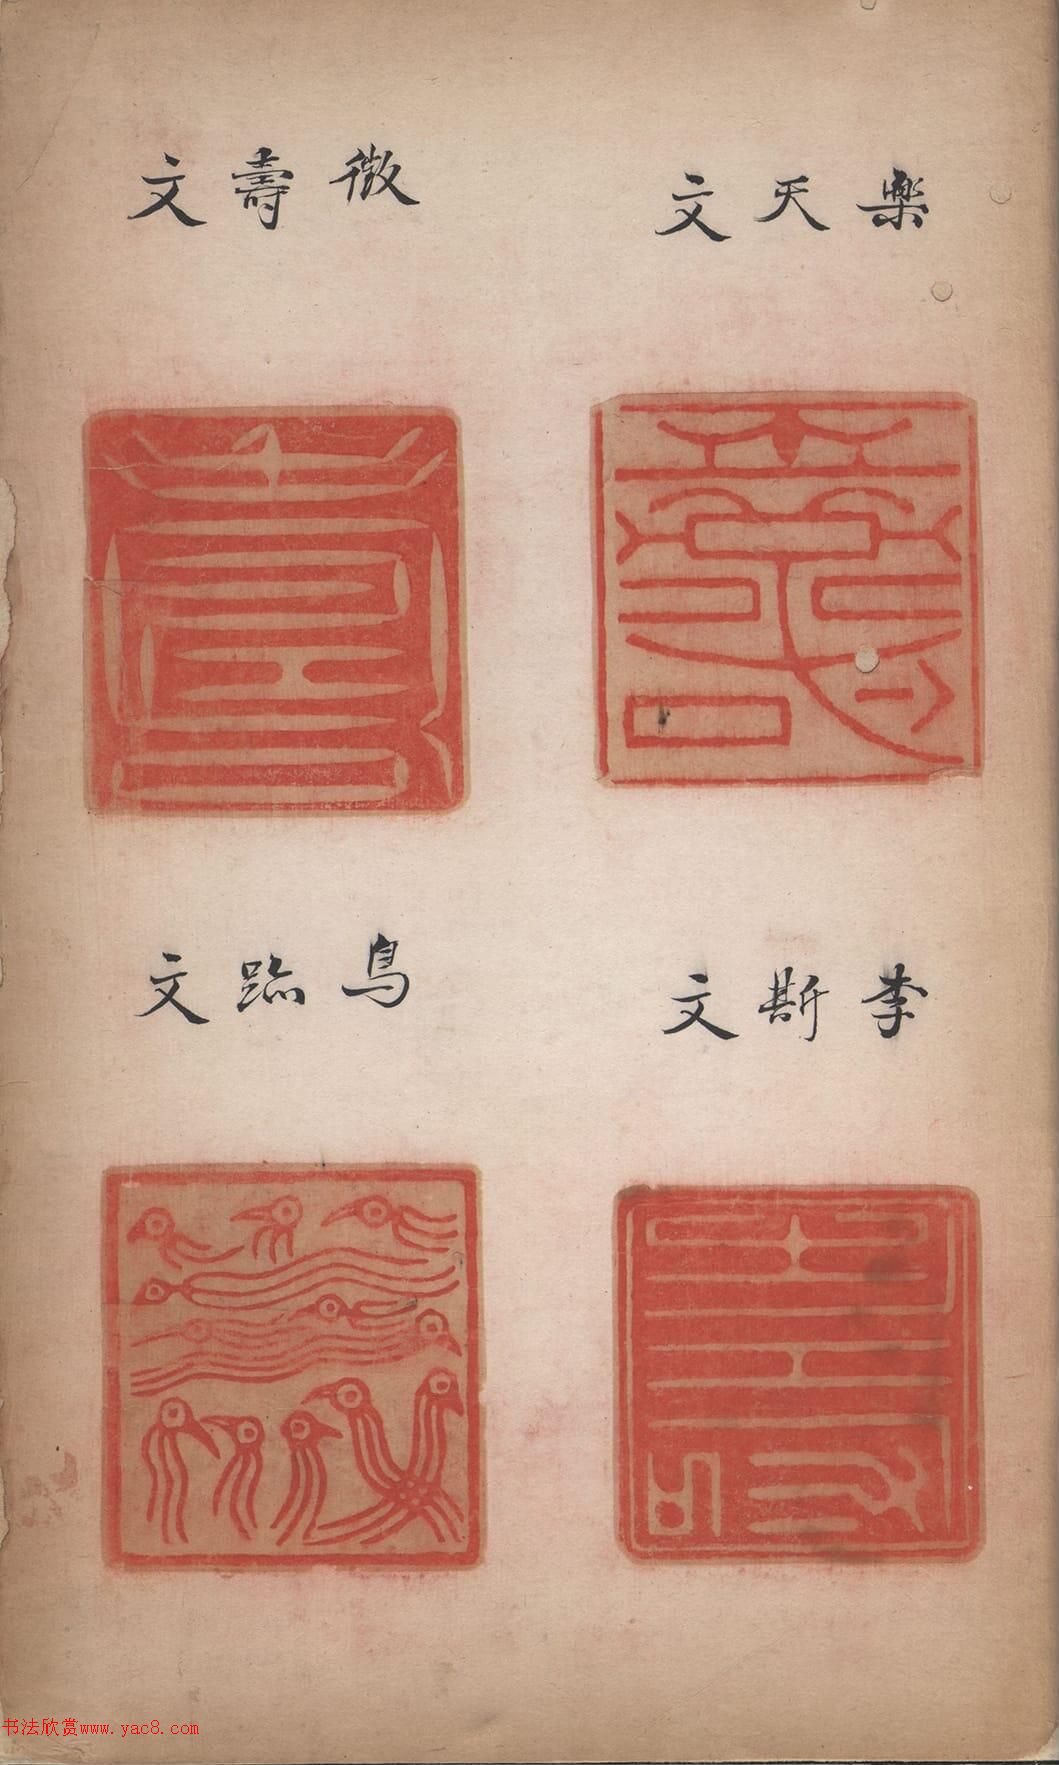 樂天文
徵壽文
李斯文
鳥跡文
书法欣赏www.yac8.com